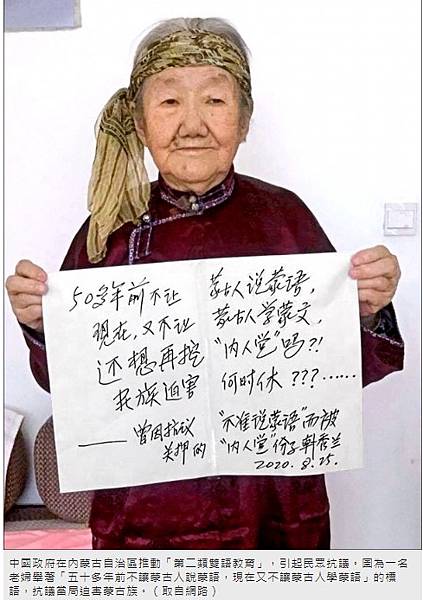 50多年前不让 蒙古人说蒙语,
现在,又不让 蒙古人学蒙文,
还想再挖 “内人党”吗?!
民族迫害 何时休???……
——曾因抗议 “不准说蒙语”而被
关押的 “内人党”份子 秀兰
2020.8.25.
中國政府在內蒙古自治區推動「第二類雙語教育」,引起民眾抗議。圖為一名
老婦舉著「五十多年前不讓蒙古人說蒙語,現在又不讓蒙古人學蒙語」的標
語,抗議當局迫害蒙古族。(取自網路)